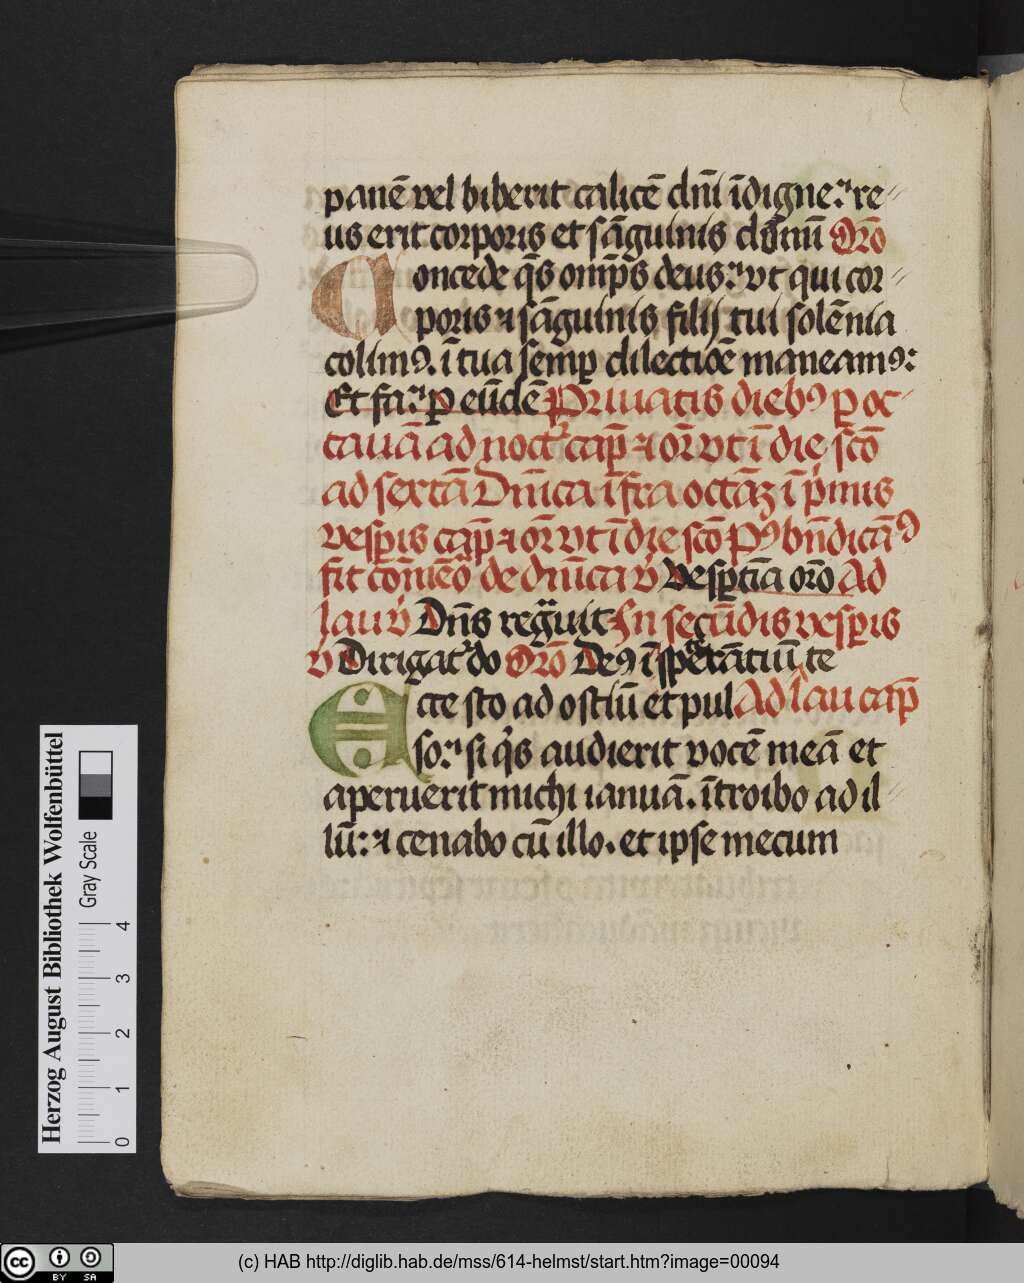 panē vel biberit calicē dn̄i īdigne: re
us erit corporis et sāguinis domī Orō
Concede q̄s omp̄s deus: vt qui cor
poris ⁊ sāguinis filij tui solēnia
colimꝰ. ī tua semꝑ dilectiōe maneamꝰ:
Et fa: ꝑ eūdē Priuatis diebꝰ ꝑ oc
tauā ad noct᷑ cap̄ ⁊ or̄ vt ī die sctō
ad sextā Dn̄ica īfra octāꝫ ī pͥmis
vesꝑis cap̄ ⁊ or̄ vt ī die sctō Pꝰ bn̄dicāꝰ
fit com̄eō de dn̄ica v̄ Vesꝑtīa orō Ad
lau v̄ Dn̄s regͣuit In secūdis vesꝑis
v̄ Dirigat᷑ do Orō Deꝰ ī sperātiū te
Ecce sto ad ostiū et pul Ad lau cap̄
so: si qͥs audierit vocē meā et
aperuerit michi ianuā. ītroibo ad il
lū: ⁊ cenabo cū illo. et ipse mecum
Herzog August Bibliothek Wolfenbüttel
Gray Scale
0 1 2 3 4
cc BY SA
(c) HAB http://diglib.hab.de/mss/614-helmst/start.htm?image=00094